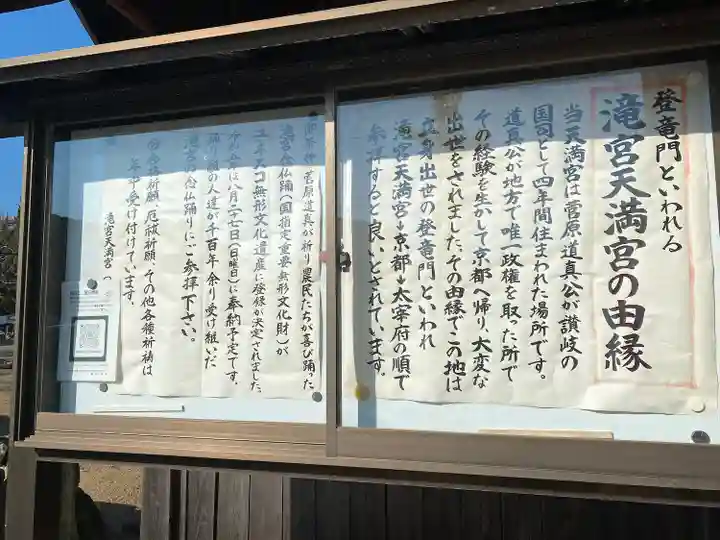 登竜門といわれる
滝宮天満宮の由縁
当天満宮は菅原道真公が讃岐の
国司として四年間住まわれた場所です。
道真公が地方で唯一政権を取った所で
その経験を生かして京都へ帰り、大変な
出世をされました、その由縁で、この地は
立身出世の登竜門といわれ
滝宮天満宮→京都→太宰府の順で
参拝すると良いとされています。
菅原道真が祈り農民たちが喜び踊った
滝宮念仏踊(国指定重要無形文化財)が
ユネスコ無形文化遺産に登録が決定されました
八月二十七日(日曜日)に奉納予定です。
の人達が千百年余り受け継いだ
滝宮念仏踊りにご参拝下さい。
祈願、厄祓祈願、その他各種祈祷は
年中受け付けています。
滝宮天満宮